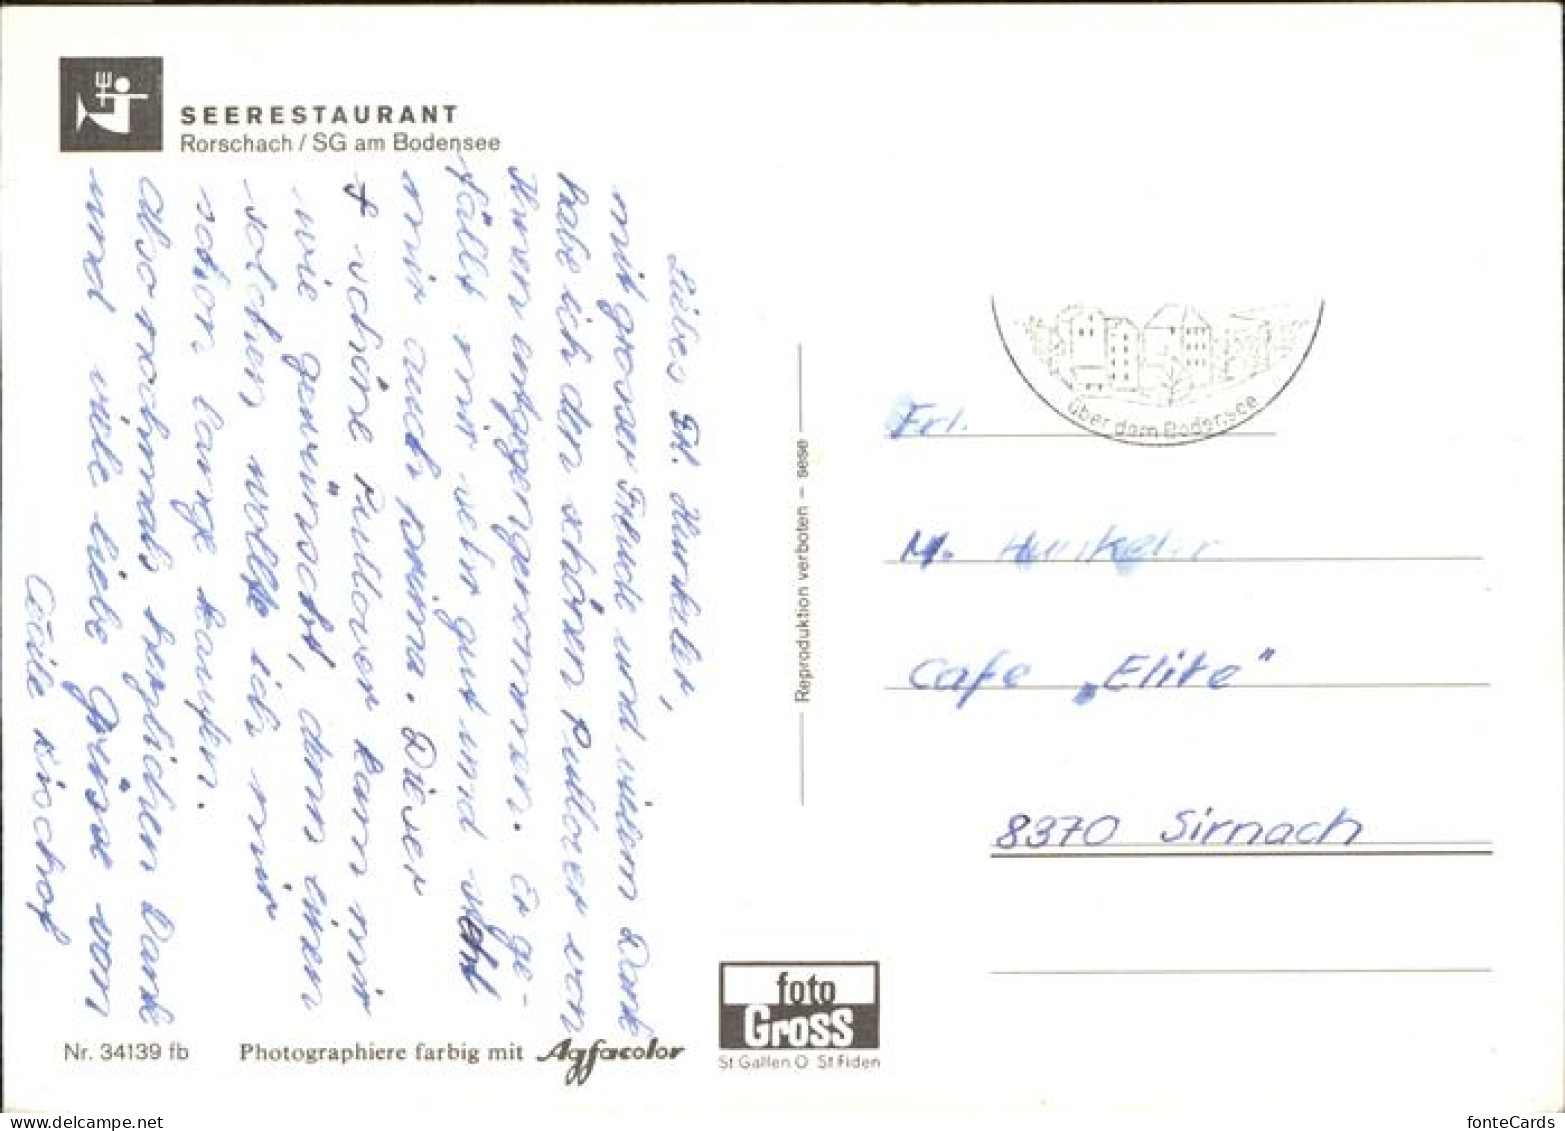 SEERESTAURANT
Rorschach / SG am Bodensee
Liebes Frl. Hunkeler,
mit grosser Freude und vielem Dank
habe ich den schönen Pullover von
Ihnen entgegengenommen. Er ge-
fällt mir sehr gut und steht
mir auch prima. Dieser
schöne Pullover kam mir
wie gewünscht, denn einen
solchen wollte ich mir
schon lange kaufen.
Also nochmals herzlichen Dank
und viele liebe Grüsse von
Cécile Bischof
Nr. 34139 fb
Photographiere farbig mit Agfacolor
Reproduktion verboten – sese
foto
Gross
St.Gallen O St.Fiden
über dem Bodensee
Frl.
M. Hunkeler
Cafe „Elite"
8370 Sirnach
www.delcampe.net
fonteCards